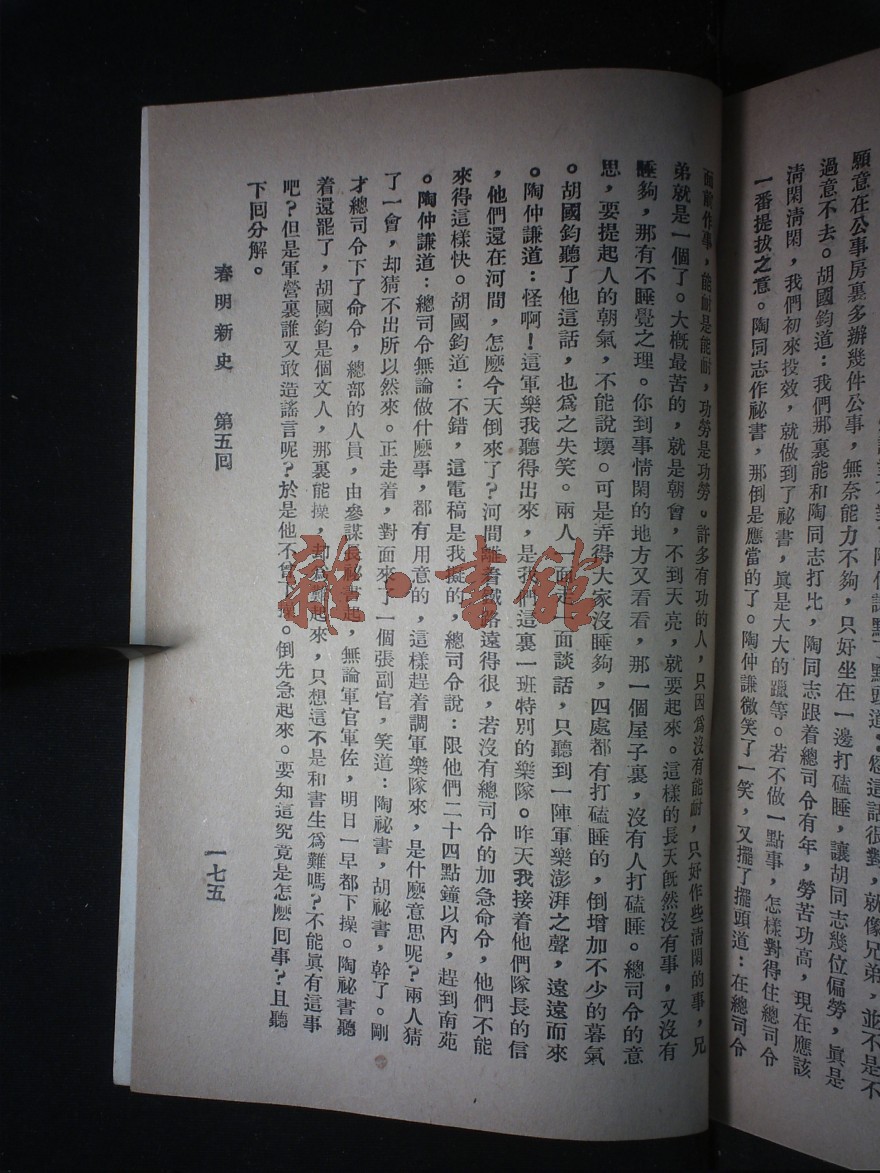 願意在公事房裏多辦幾件公事，無奈能力不夠，只好坐在一邊打磕睡，讓胡同志幾位偏勞，眞是
過意不去。胡國鈞道：我們那裏能和陶同志打比，陶同志跟着總司令有年，勞苦功高，現在應該
淸閑淸閑，我們初來投效，就做到了祕書，眞是大大的躐等。若不做一點事，怎樣對得住總司令
一番提拔之意。陶同志作祕書，那倒是應當的了。陶仲謙微笑了一笑，又擺了擺頭道：在總司令
作事，能耐是能耐，功勞是功勞。許多有功的人，只因爲沒有能耐，只好作些淸閑的事，兄
弟就是一個了。大槪最苦的，就是朝會，不到天亮，就要起來。這樣的長天旣然沒有事，又沒有
睡夠，那有不睡覺之理。你到事情閑的地方又看看，那一個屋子裏，沒有人打磕睡。總司令的意
思，要提起人的朝氣，不能說壞。可是弄得大家沒睡夠，四處都有打磕睡的，倒增加不少的暮氣
。胡國鈞聽了他這話，也爲之失笑。兩人一面走一面談話，只聽到一陣軍樂澎湃之聲，遠遠而來
。陶仲謙道：怪啊！這軍樂我聽得出來，是我們這裏一班特別的樂隊。昨天我接着他們隊長的信
，他們還在河間，怎麽今天倒來了？河間離着鐵路遠得很，若沒有總司令的加急命令，他們不能
來得這樣快。胡國鈞道：不錯，這電稿是我擬的，總司令說：限他們二十四點鐘以內，趕到南苑
。陶仲謙道：總司令無論做什麽事，都有用意的，這樣趕着調軍樂隊來，是什麽意思呢？兩人猜
了一會，却猜不出所以然來。正走着，對面來了一個張副官，笑道：陶祕書，胡祕書，幹了。剛
才總司令下了命令，總部的人員，由參謀長祕書起，無論軍官軍佐，明日一早都下操。陶祕書聽
着還罷了，胡國鈞是個文人，那裏能操，却爲難起來，只想這不是和書生爲難嗎？不能眞有這事
吧？但是軍營裏誰又敢造謠言呢？於是他不曾下操。倒先急起來。要知這究竟是怎麽回事？且聽
下回分解。
春明新史　第五回
一七五
雜·書館